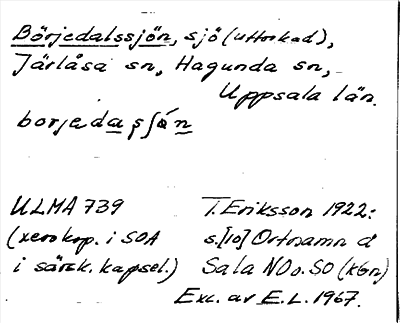 Börjedalssjön, sjö (uttorkad),
Järlåsa sn, Hagunda sn,
Uppsala län.
borjedasʃǿn
ULMA 739
(xerokop. i SOA
i särsk. kapsel.)
T. Eriksson 1922:
s.[10] Ortnamn å
Sala NO o. SO (kbn)
Exc. av E.L. 1967.